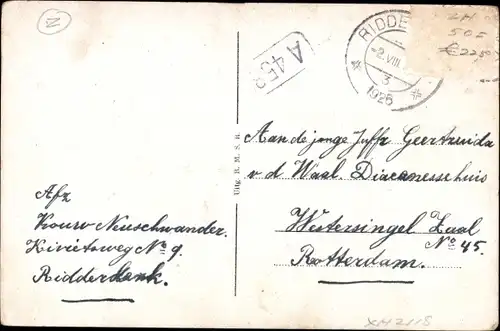 Z
A 453
RIDDE
-2.VIII
3
1925
ZH
505
€ 225
Uitg. R. M. S. R.
Aan de jonge Juffr Geertruida
v d Waal. Diaconessehuis
Westersingel Zaal
No 45.
Rotterdam.
Afz
Vrouw Neuschwander.
Kievitsweg No 9.
Ridderkerk.
XH2118